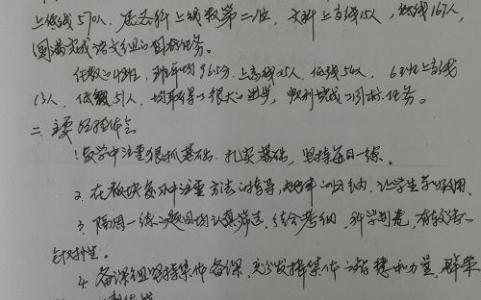 上低线570人、居总科上线数第二位，文科上高线15人，低线167人，
圆满完成语文组的目标任务。
任教高三48班，班平均96.5分，上高线25人，低线54人，62班上高线
13人，低线51人，均取得了很大的进步，顺利完成了目标任务。
二、主要经验体会
1.教学中注重狠抓基础，扎实基础，坚持每日一练。
2.在板块复习中注重方法的指导，规律的归纳，让学生学以致用。
3.隔周一练的题目均认真筛选，结合考纲，科学制卷，有较强的
针对性。
4.备课组坚持集体备课，充分发挥集体的智慧和力量，群策